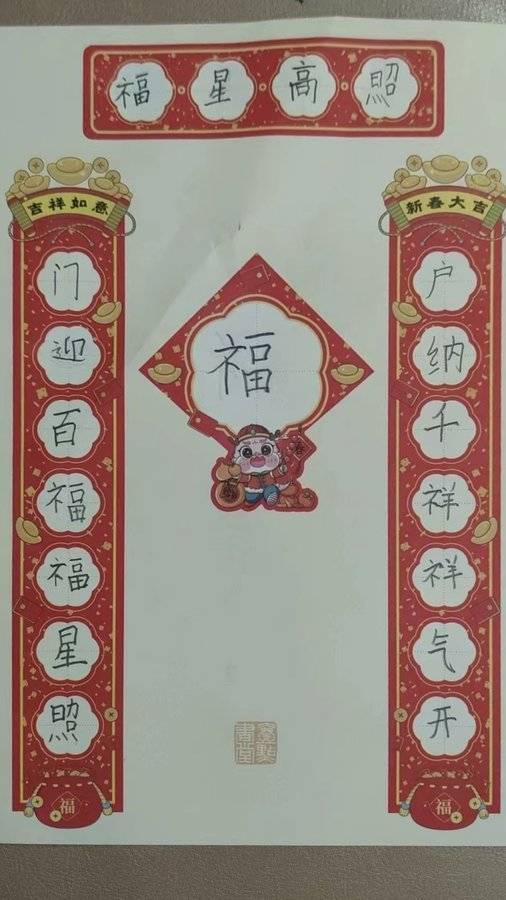 福星高照
吉祥如意
门迎百福福星照
福
新春大吉
户纳千祥祥气开
福
福